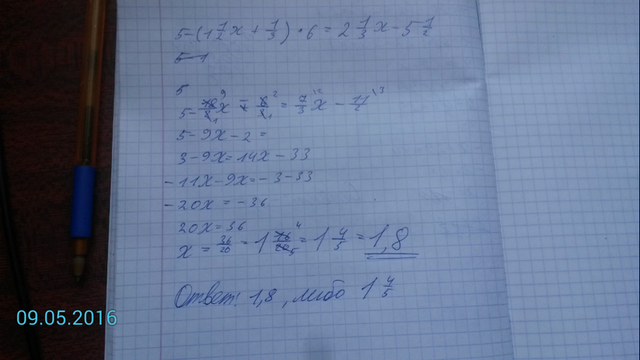 5-(1 1/2x + 1/3) · 6 = 2 1/3x - 5 1/2
5-1
5
5 - 18/2x - 6/3 = 7/3x - 11/2
5-9x-2 =
3-9x=14x-33
-11x-9x=-3-33
-20x = -36
20x = 36
x = 36/20 = 1 16/20 = 1 4/5 = 1,8
Ответ: 1,8, либо 1 4/5
09.05.2016